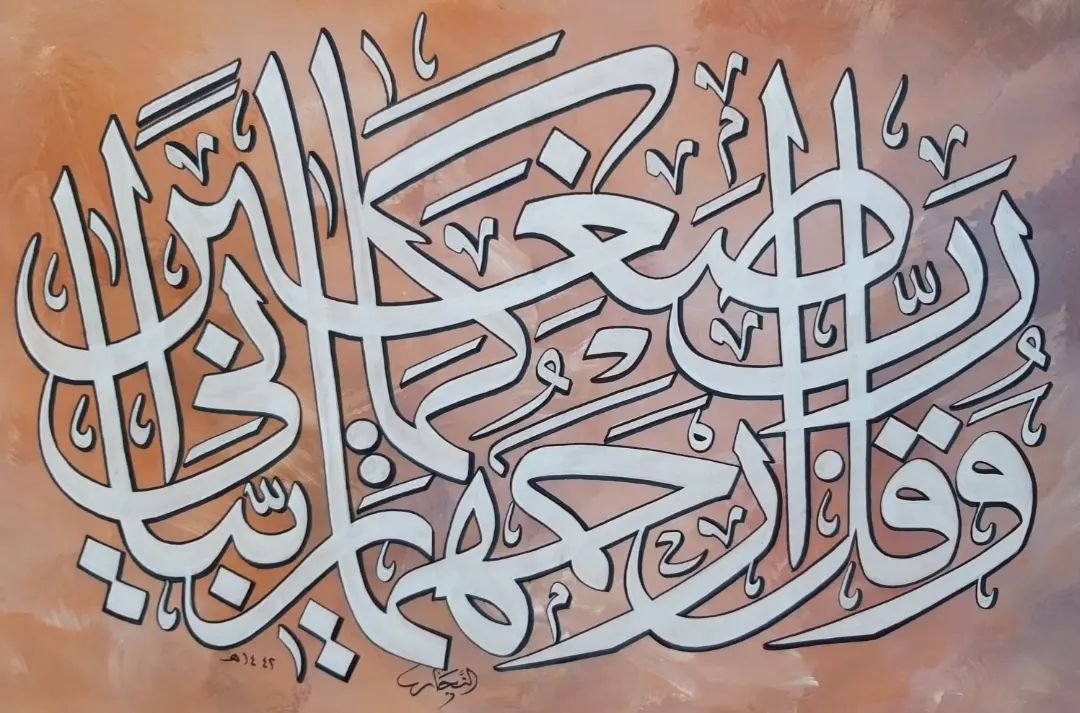 وَقُل رَّبِّ ارْحَمْهُمَا كَمَا رَبَّيَانِي صَغِيرًا
١٤٤٢هـ